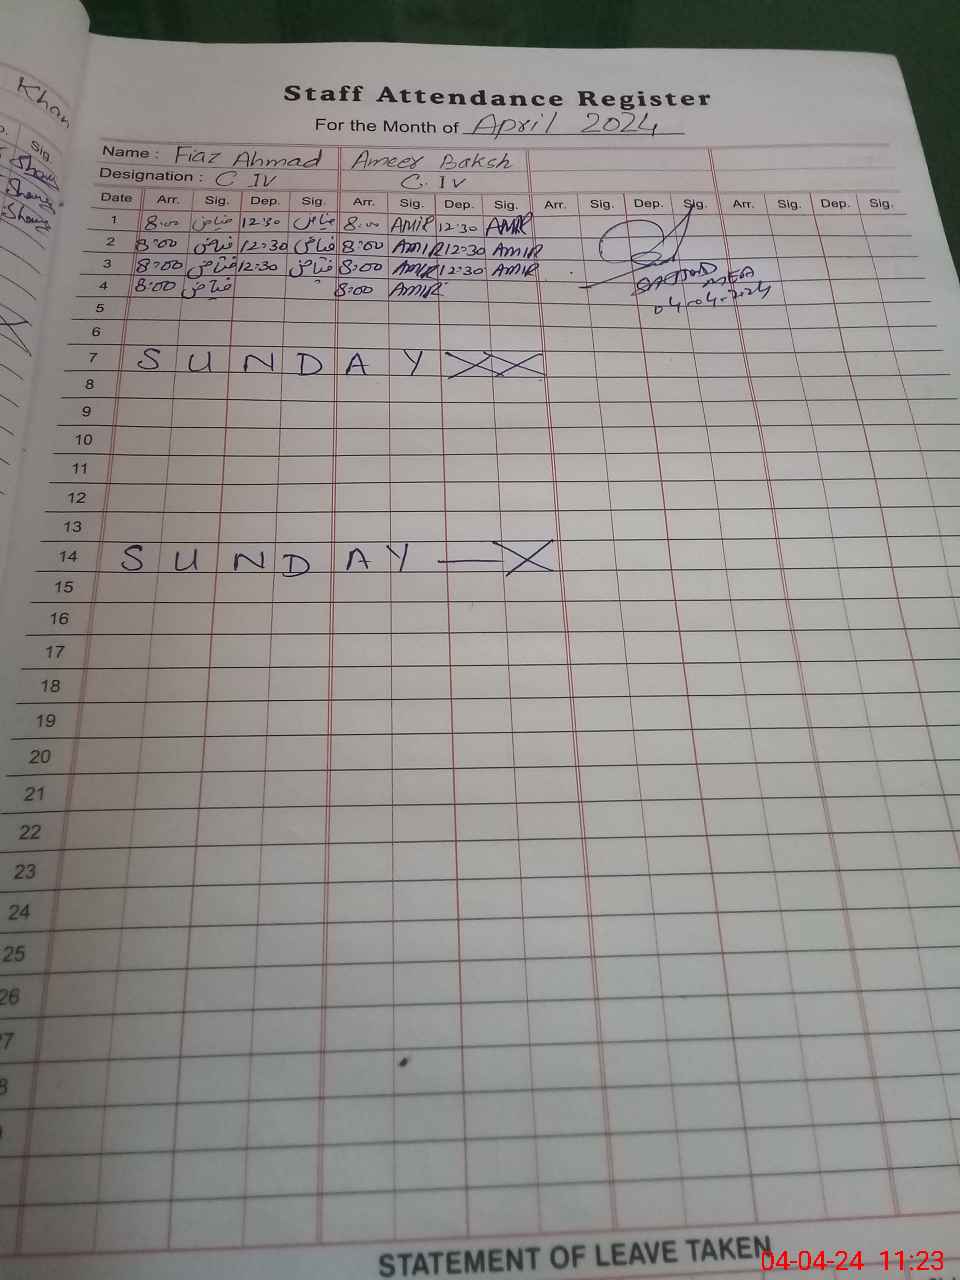 Khan
Sig.
Shouz
Shouz
Shouz
Staff Attendance Register
For the Month of April 2024
Name : Fiaz Ahmad Ameer Baksh
Designation : C IV C. IV
Date Arr. Sig. Dep. Sig. Arr. Sig. Dep. Sig. Arr. Sig. Dep. Sig. Arr. Sig. Dep. Sig.
1 8:00 فیاض 12:30 فیاض 8:00 AMIR 12:30 AMIR
2 8:00 فیاض 12:30 فیاض 8:00 AMIR 12:30 AMIR
3 8:00 فیاض 12:30 فیاض 8:00 AMIR 12:30 AMIR
4 8:00 فیاض 8:00 AMIR
MEA
04-04-2024
5
6
7 S U N D A Y
8
9
10
11
12
13
14 S U N D A Y
15
16
17
18
19
20
21
22
23
24
25
26
7
8
STATEMENT OF LEAVE TAKEN
04-04-24 11:23